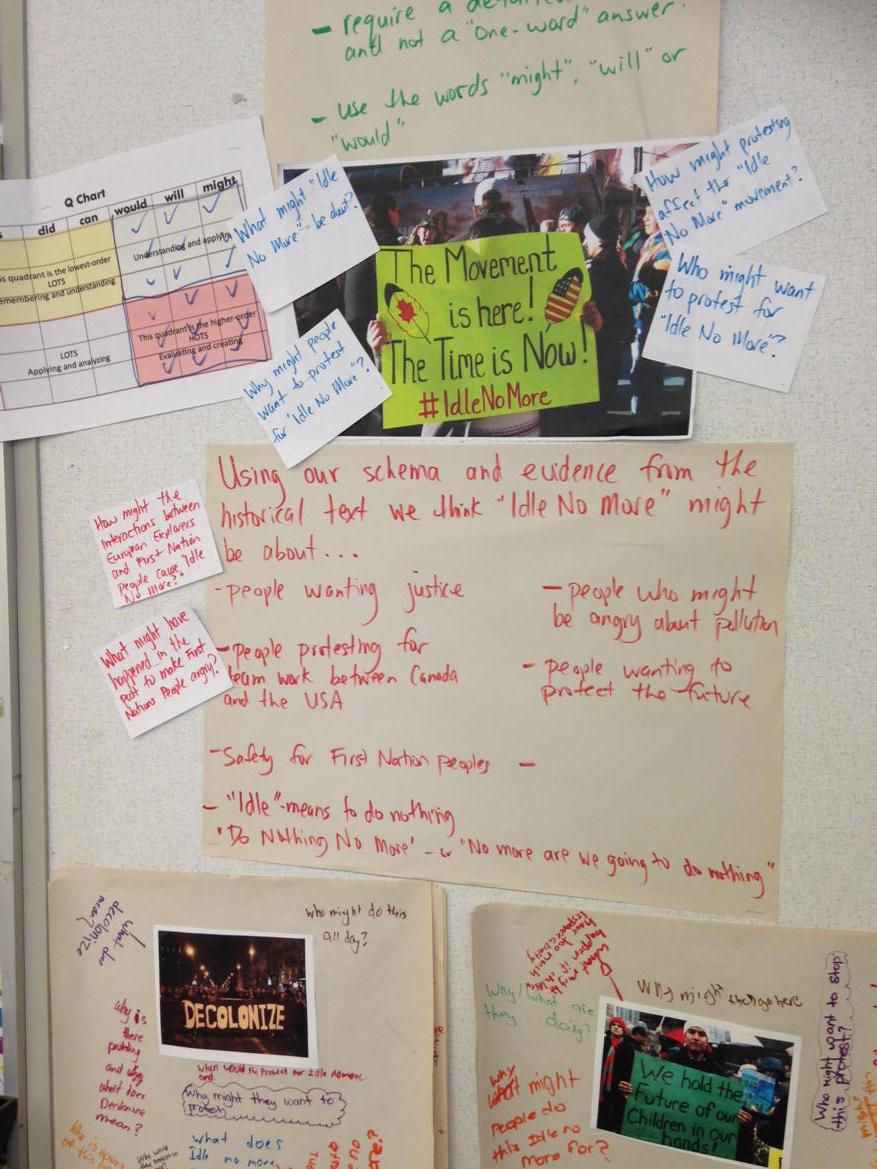 - require a
and not a "one-word" answer.
- use the words "might", "will" or
"would"
Q Chart
did
can
would
will
might
Understanding and
is quadrant is the lowest-order
LOTS
remembering and understanding
This quadrant is the higher-order
HOTS
Evaluating and creating
LOTS
Applying and analyzing
What might "Idle
No More" be about?
Why might people
want to protest
for "Idle No More"?
The Movement
is here!
The Time is Now!
#IdleNoMore
How might protesting
affect the "Idle
No More" movement?
Who might want
to protest for
"Idle No More"?
Using our schema and evidence from the
historical text we think "Idle No More" might
be about...
- people wanting justice
- people protesting for
team work between Canada
and the USA
- Safety for First Nation peoples -
- "Idle" - means to do nothing
"Do Nothing No More" - or "No more are we going to do nothing"
- people who might
be angry about pollution
- people wanting to
protect the future
How might the
interactions between
European Explorers
and First Nation
People cause "Idle
No More?"
What might have
happened in the
past to make First
Nations People angry?
what does
decolonize
mean?
who might do this
all day?
DECOLONIZE
why is
there
and why
what does
mean?
Why might they want to
protest
what does
Idle no more
Why/what are
they doing?
Why might they go here
We hold the
Future of our
Children in our
hands!
why
might
People do
this Idle no
more for?